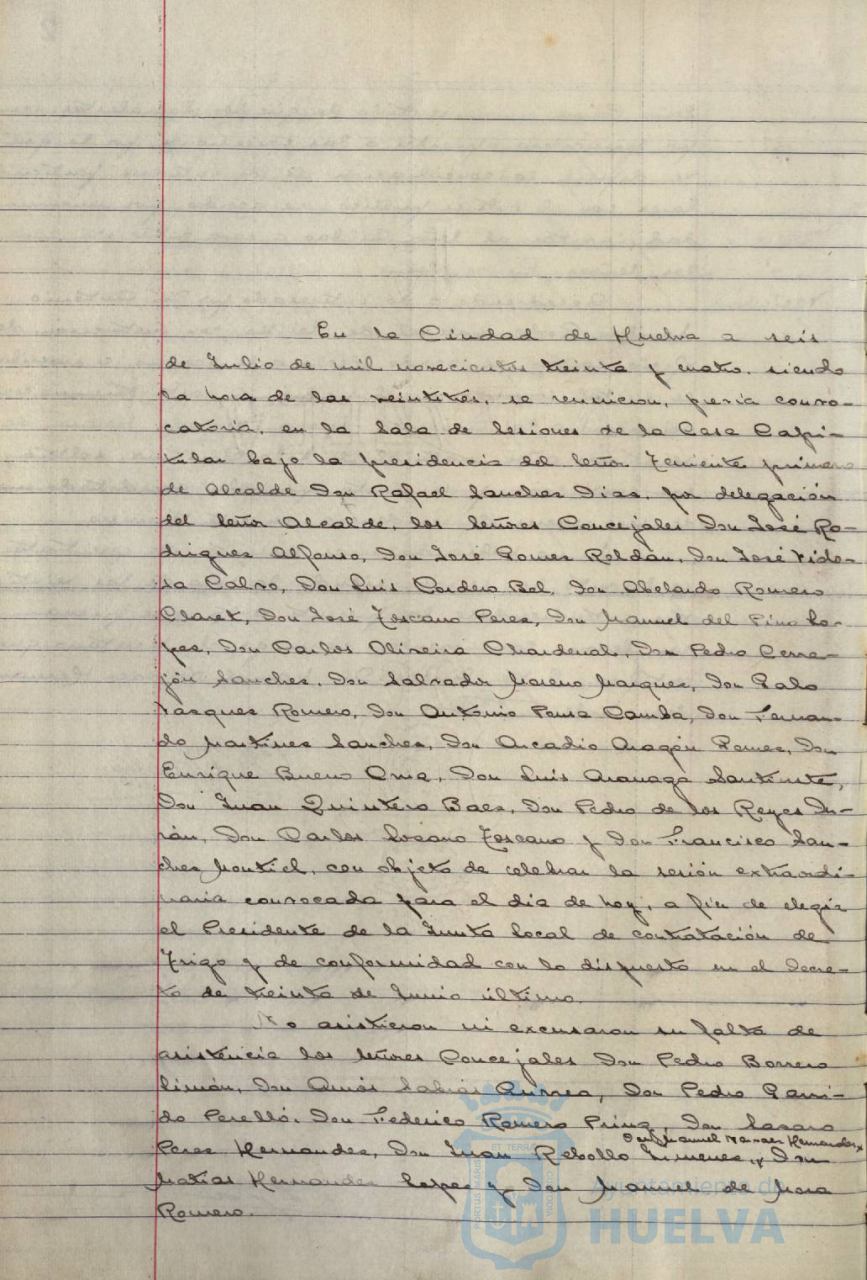 En la Ciudad de Huelva a seis
de Julio de mil novecientos treinta y cuatro, siendo
la hora de las veintitres, se reunieron, previa convo-
catoria, en la Sala de Sesiones de la Casa Capi-
tular bajo la presidencia del Señor Teniente primero
de Alcalde Don Rafael Sanchez Diaz, por delegación
del Señor Alcalde, los Señores Concejales Don José Ro-
driguez Alfonso, Don José Gomez Roldán, Don José Vide-
ra Calvo, Don Luis Cordero Bel, Don Abelardo Romero
Claret, Don José Toscano Perez, Don Manuel del Pino Lo-
pez, Don Carlos Oliveira Chardenal, Don Pedro Cerre-
jón Sanchez, Don Salvador Moreno Marquez, Don Galo
Vazquez Romero, Don Antonio Ponsa Camba, Don Fernan-
do Martinez Sanchez, Don Arcadio Aragón Gomez, Don
Enrique Bueno Cruz, Don Luis Aranaga Santiuste,
Don Juan Quintero Baez, Don Pedro de los Reyes Du-
rán, Don Carlos Lozano Toscano y Don Francisco San-
chez Montiel, con objeto de celebrar la sesión extraordi-
naria convocada para el dia de hoy, a fin de elegir
el Presidente de la Junta local de contratación de
Trigo y de conformidad con lo dispuesto en el Decre-
to de treinta de Junio último.
No asistieron ni excusaron su falta de
asistencia los Señores Concejales Don Pedro Borrero
Limón, Don Amós Sabrás Gurrea, Don Pedro Garri-
do Perelló, Don Federico Romero Prinz, Don Lazaro
Don Manuel Narvaez Hernandez,
Perez Hernandez, Don Juan Rebollo Jimenez, y Don
Matias Hernandez Lopez y Don Manuel de Mora
Romero.
Ayuntamiento de
HUELVA